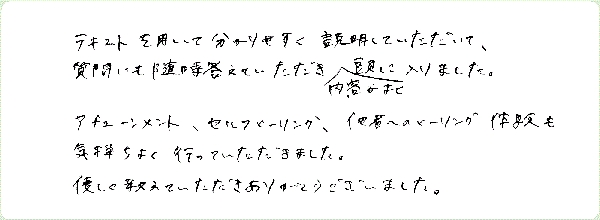 テキストを用いて分かりやすく説明していただいて、
質問にも随時答えていただき頭に入りました。
内容がまじ
アチューンメント、セルフヒーリング、他者へのヒーリング体験も
気持ちよく行っていただきました。
優しく教えていただきありがとうございました。